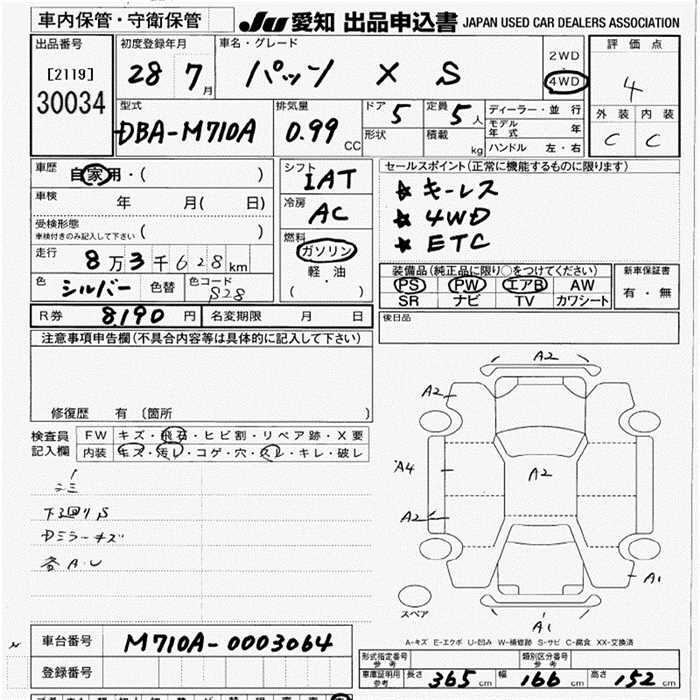 車内保管・守衛保管
JU 愛知 出品申込書 JAPAN USED CAR DEALERS ASSOCIATION
出品番号
[2119]
30034
初度登録年月
28 7月
車名・グレード
パッソ X S
2WD
4WD
評価点
4
外装 内装
C C
型式
DBA-M710A
排気量
0.99 CC
ドア 5
形状
定員 5人
積載 kg
ディーラー・並行
モデル年式 年
ハンドル 左・右
車歴
自家用・( )
車検
年 月( 日)
受検形態
車検付きのみ記入して下さい ( )
走行
8万3千628km
色
シルバー 色替
色コード
S28
シフト
IAT
冷房
AC
燃料
ガソリン
軽油
( )
セールスポイント(正常に機能するものに限ります)
★ キーレス
★ 4WD
★ ETC
装備品(純正品に限り○をつけてください)
PS PW エアB AW
SR ナビ TV カワシート
新車保証書
有・無
R券 8190 円 名変期限 月 日
後日品
注意事項申告欄(不具合内容等は具体的に記入して下さい)
修復歴 有 〔箇所 〕
検査員記入欄
FW キズ・飛石・ヒビ割・リペア跡・X要
内装 キズ・汚レ・コゲ・穴・スレ・キレ・破レ
下廻りS
Dミラーキズ
各A・U
A2
A2
A4
A2
A2
A1
A1
スペア
A-キズ E-エクボ U-凹み W-補修跡 S-サビ C-腐食 XX-交換済
車台番号 M710A-0003064
登録番号
形式指定番号 参考
類別区分番号 参考
車庫証明用 参考 長さ 365cm 幅 166cm 高さ 152cm